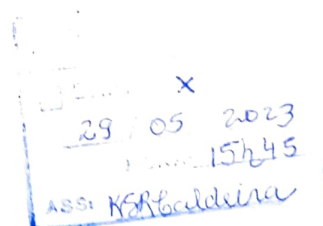 X
29 05 2023
15h45
ASS: KSRCaldeira